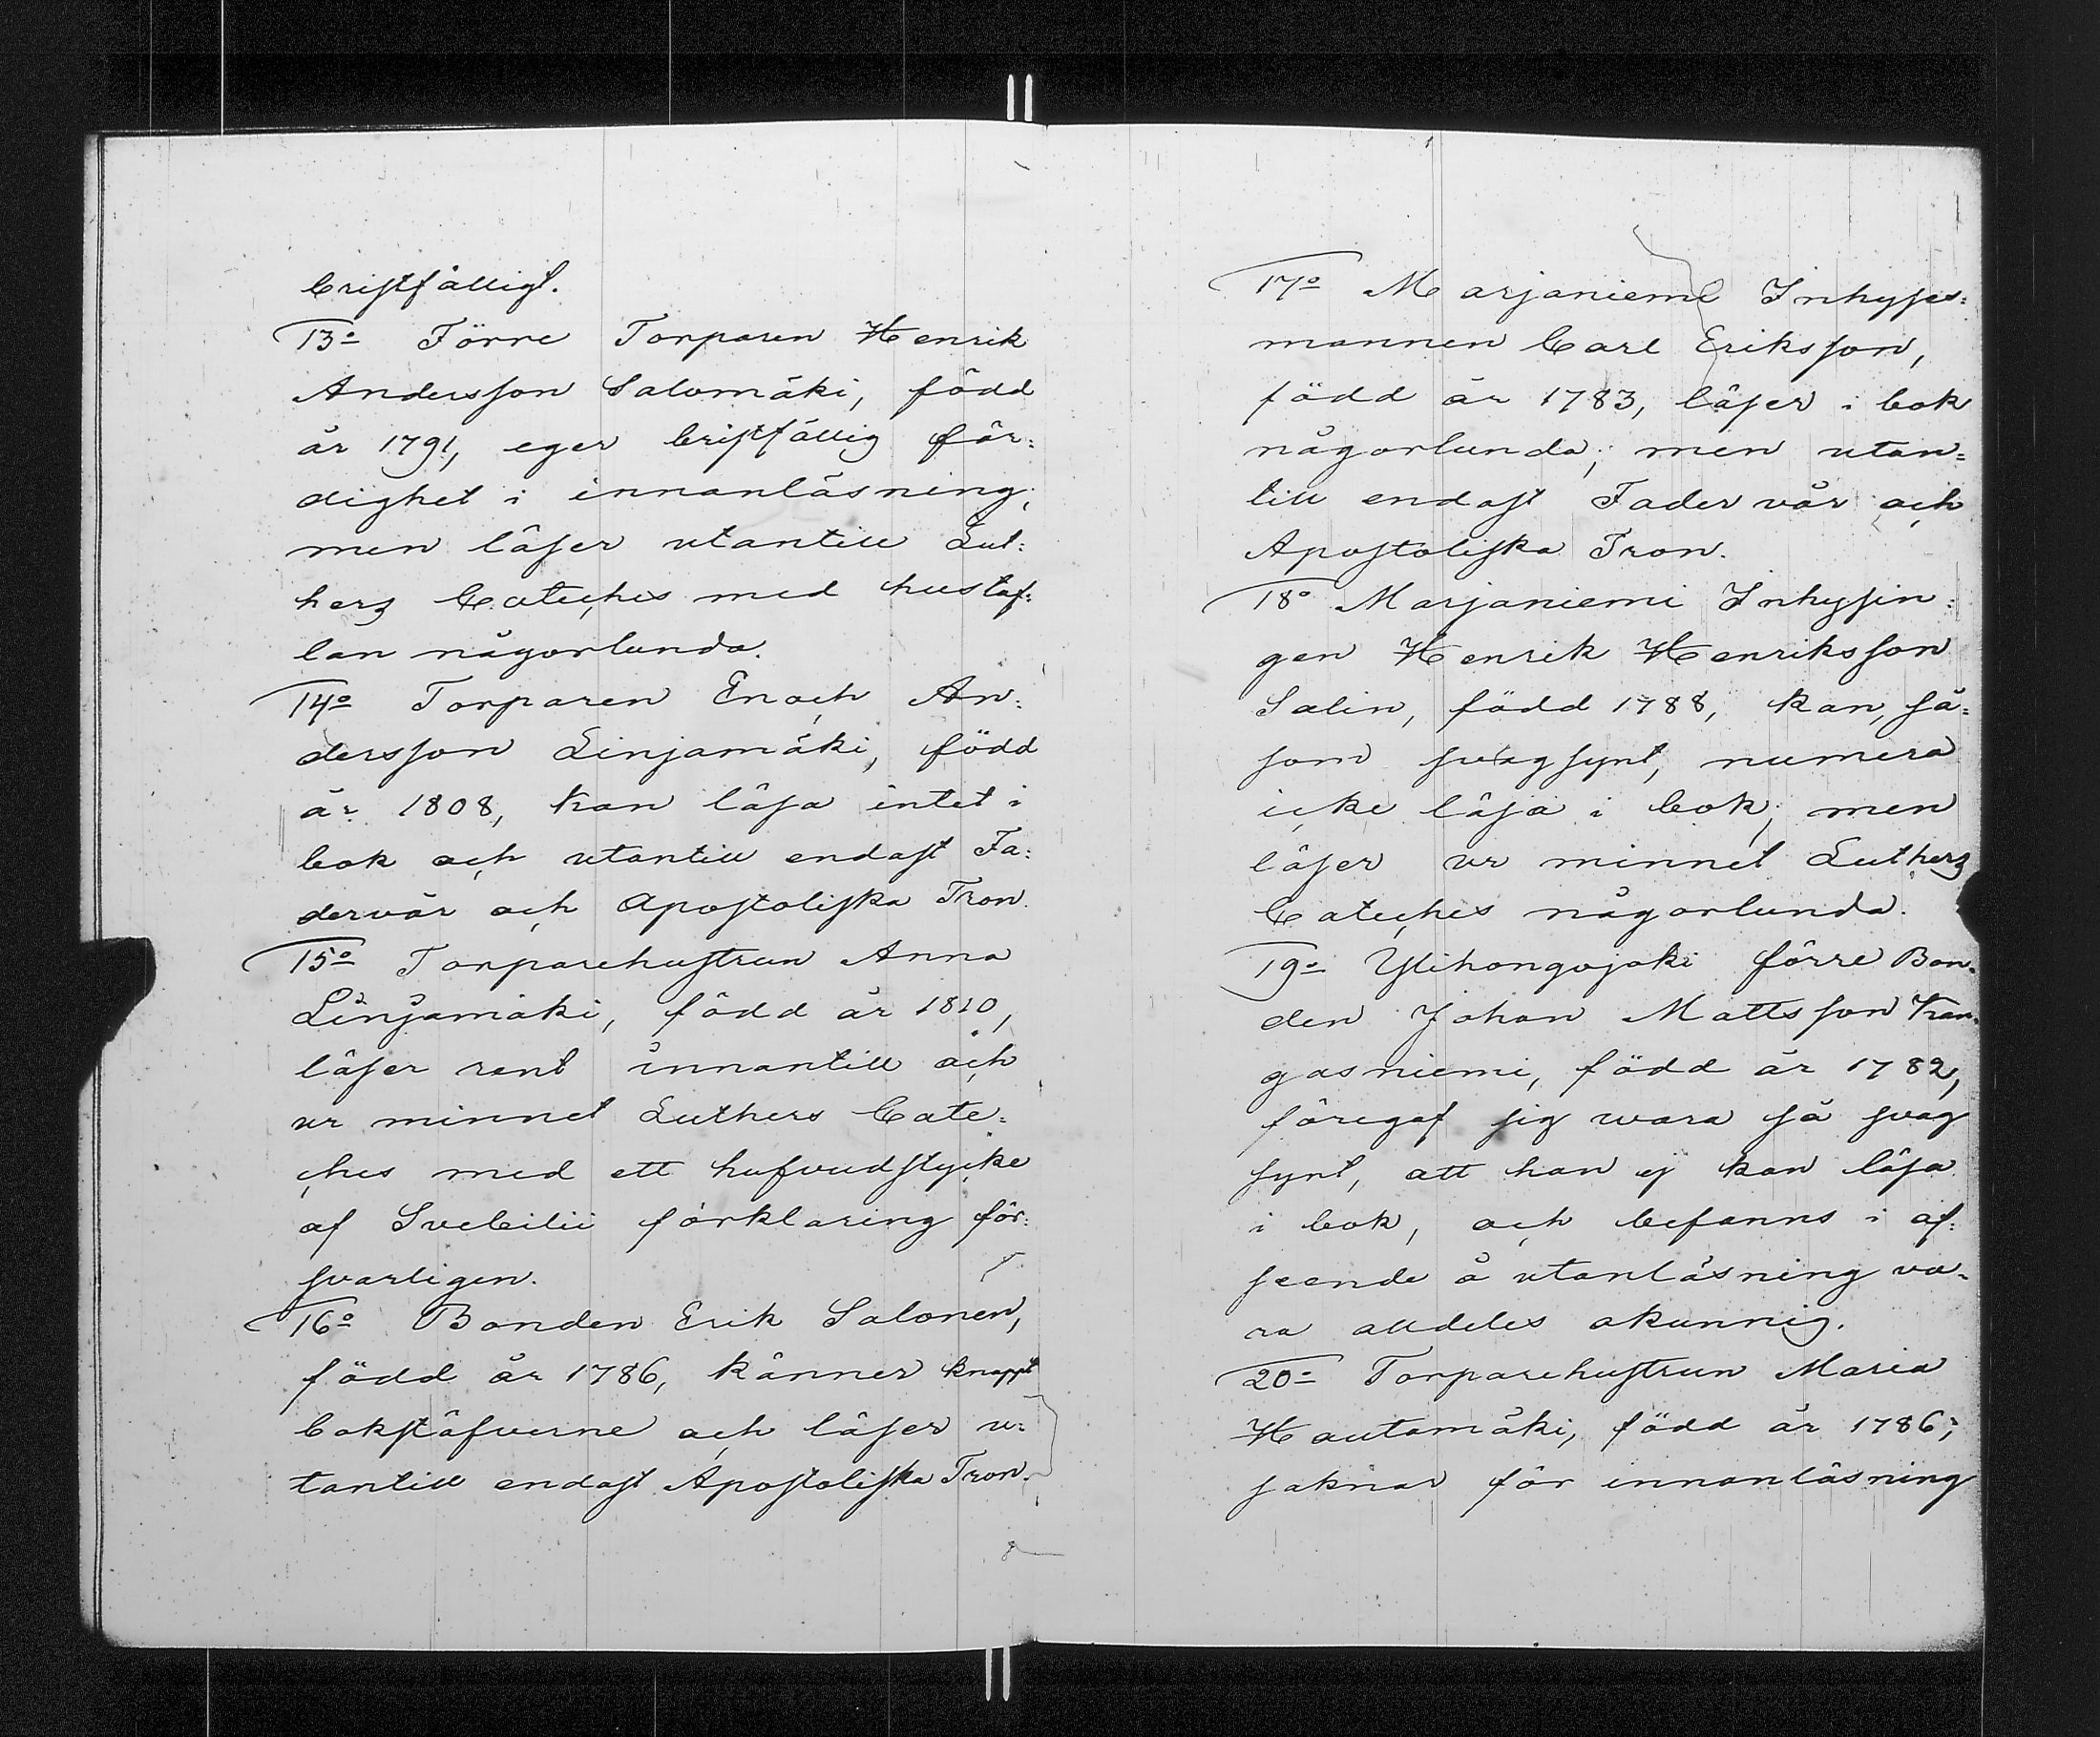 bristfälligt.
13o Förre Torparen Henrik
Andersson Salomäki, född
år 1791, eger bristfällig fär=
dighet i innanläsning,
men läser utantill Lut=
hers Cateches med hustaf=
lan någorlunda.
14o Torparen Enoch An=
dersson Linjamäki, född
år 1808, kan läsa intet i
bok och utantill endast Fa=
dervår och Apostoliska Tron.
15o Torparehustrun Anna
Linjamäki, född år 1810,
läser rent innantill och
ur minnet Luthers Cate=
ches med ett hufvudstycke
af Svebilii förklaring för=
svarligen.
16o Bonden Erik Salonen,
född år 1786, känner knappt
bokstäfverne och läser u=
tantill endast Apostoliska Tron.
17o Marjaniemi Inhyses=
mannen Carl Eriksson,
född år 1783, läser i bok
någorlunda; men utan=
till endast Fader vår och
Apostoliska Tron.
18o Marjaniemi Inhysin=
gen Henrik Henriksson
Salin, född 1788, kan, så=
som svagsynt, numera
icke läsa i bok; men
läser ur minnet Luthers
Cateches någorlunda.
19o Ylihongojoki förre Bon=
den Johan Mattsson Kan=
gasniemi, född år 1782,
föregaf sig wara så svag
synt, att han ej kan läsa
i bok, och befanns i af=
seende å utanläsning va=
ra alldeles okunnig.
20o Torparehustrun Maria
Hautamäki, född år 1786;
saknar för innanläsning